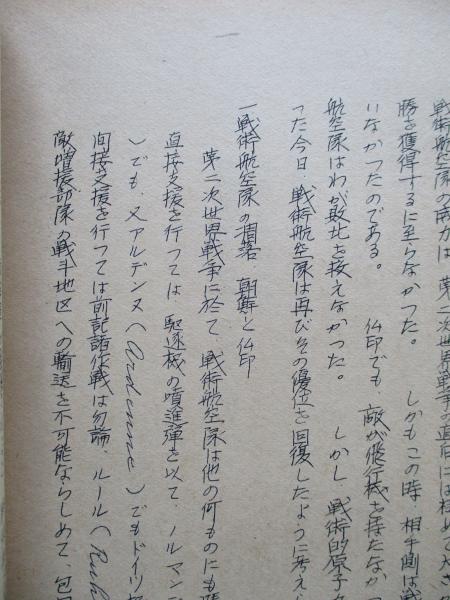 戦術航空隊の威力は、第二次世界戦争の直后には極めて大き
勝を獲得するに至らなかった。　しかもこの時、相手側は戦
いなかつたのである。　仏印でも、敵が飛行機を持たなかつ
航空隊はわが敗北を救えなかった。　しかし、戦術的原子
った今日、戦術航空隊は再びその優位を回復したように考え
一戦術航空隊の凋落、朝鮮と仏印
第二次世界戦争に於て、戦術航空隊は他の何ものにも
直接支援を行っては、駆逐機の噴進弾を以て、ノルマン
）でも、又アルデンヌ（Ardenne）でもドイツ
間接支援を行っては前記諸作戦は勿論、ルール（Ruh
敵増援部隊の戦斗地区への輸送を不可能ならしめて、包